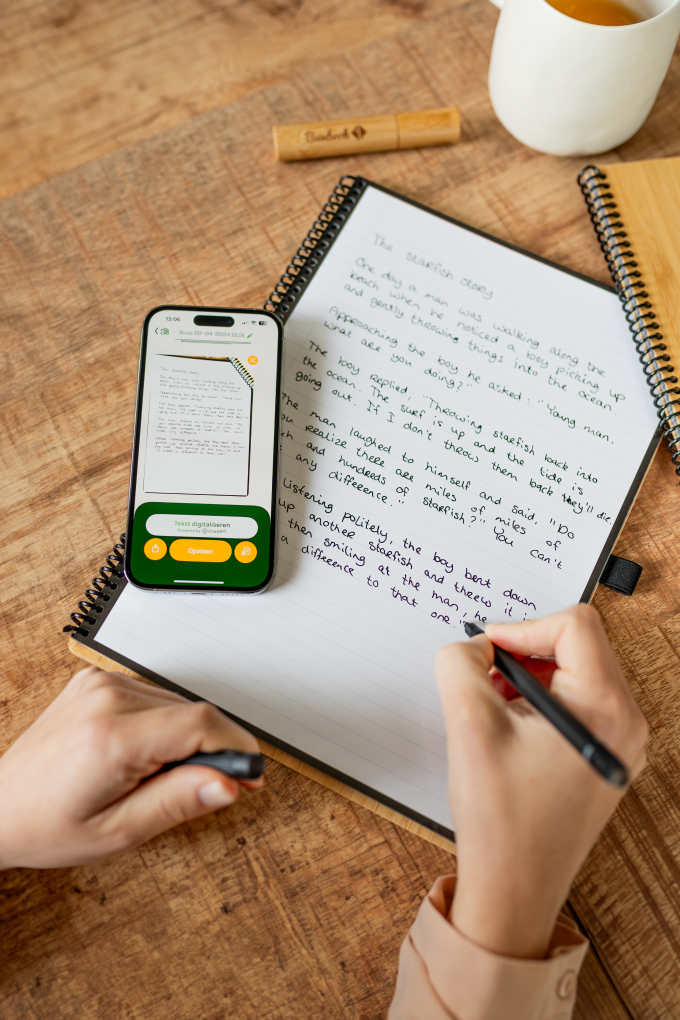 Bambook
The starfish story
One day a man was walking along the
beach when he noticed a boy picking up
and gently throwing things into the ocean
Approaching the boy he asked: "Young man.
what are you doing?"
The boy replied, "Throwing starfish back into
the ocean. The surf is up and the tide is
going out. If I don't throw them back they'll die
The man laughed to himself and said, "Do
you realize there are miles of miles of
and hundreds of starfish?" You can't
any difference."
Listening politely, the boy bent down
up another starfish and threw it
then smiling at the man, he
a difference to that one."
13:06
Tekst digitaliseren
Powered by ChatGPT
Opslaan